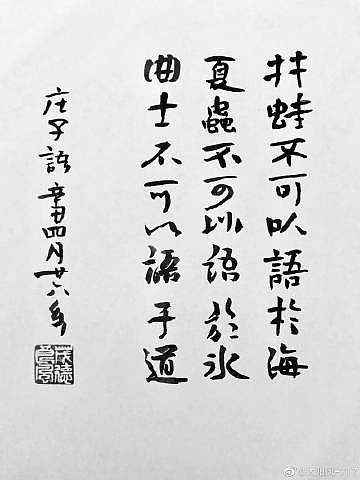 井蛙不可以語於海
夏蟲不可以語於冰
曲士不可以語于道
庄子語 辛丑四月廿六